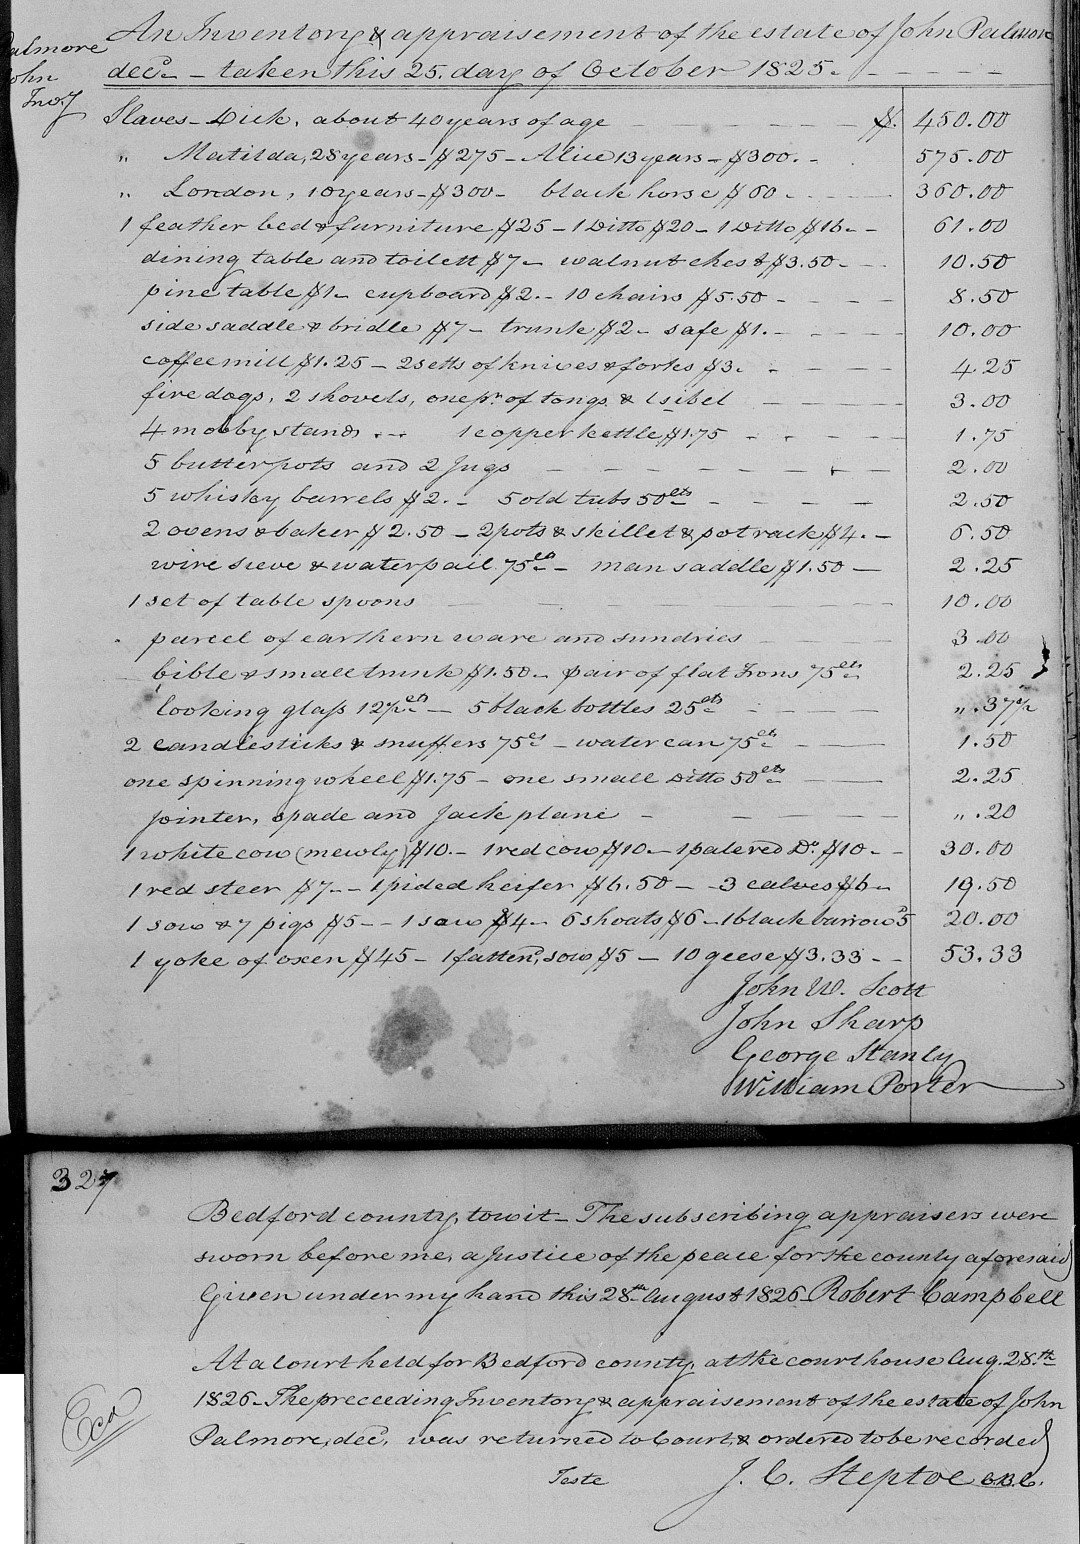 An Inventory & appraisement of the estate of John Palmore
decd. - taken this 25. day of October 1825.
Palmore
John
Invy
Slaves - Dick, about 40 years of age $. 450.00
" Matilda, 28 years - $275 - Alice 13 years - $300. 575.00
" London, 10 years - $300 - black horse $60 360.00
1 feather bed & furniture $25 - 1 Ditto $20 - 1 Ditto $16 61.00
dining table and toilett $7 - walnut chest $3.50 10.50
pine table $1 - cupboard $2. - 10 chairs $5.50 8.50
side saddle & bridle $7 - trunk $2 - safe $1. 10.00
coffee mill $1.25 - 2 setts of knives & forks $3. 4.25
fire dogs, 2 shovels, one pr. of tongs & 1 3.00
4 stands 1 copper kettle $1.75 1.75
5 butter pots and 2 Jugs 2.00
5 whisky barrels $2. - 5 old tubs 50cts 2.50
2 ovens & baker $2.50 - 2 pots & skillet & pot rack $4. 6.50
wire sieve & water pail 75cts - man saddle $1.50 2.25
1 set of table spoons 10.00
parcel of earthern ware and sundries 3.00
bible & small trunk $1.50 - pair of flat Irons 75cts 2.25
looking glass 12½cts - 5 black bottles 25cts ".37½
2 candlesticks & snuffers 75cs - water can 75cts 1.50
one spinning wheel $1.75 - one small Ditto 50cts 2.25
Jointer, spade and Jack plane ".20
1 white cow (mewly) $10. - 1 red cow $10 - 1 pale red Do. $10 30.00
1 red steer $7 - 1 pided heifer $6.50 - 3 calves $6 19.50
1 sow & 7 pigs $5 - 1 sow $4 - 6 shoats $6 - 1 black barrow $5 20.00
1 yoke of oxen $45 - 1 fattend. sow $5 - 10 geese $3.33 53.33
John W. Scott
John Sharp
George Stanly
William Porter
327
Bedford county, towit - The subscribing appraisers were
sworn before me, a Justice of the peace for the county aforesaid
Given under my hand this 28th August 1826 - Robert Campbell
At a Court held for Bedford county, at the courthouse Aug. 28th
1826 - The preceeding Inventory & appraisement of the estate of John
Palmore, decd. was returned to Court & ordered to be recorded
Exd
Teste J. C. Steptoe C.B.C.